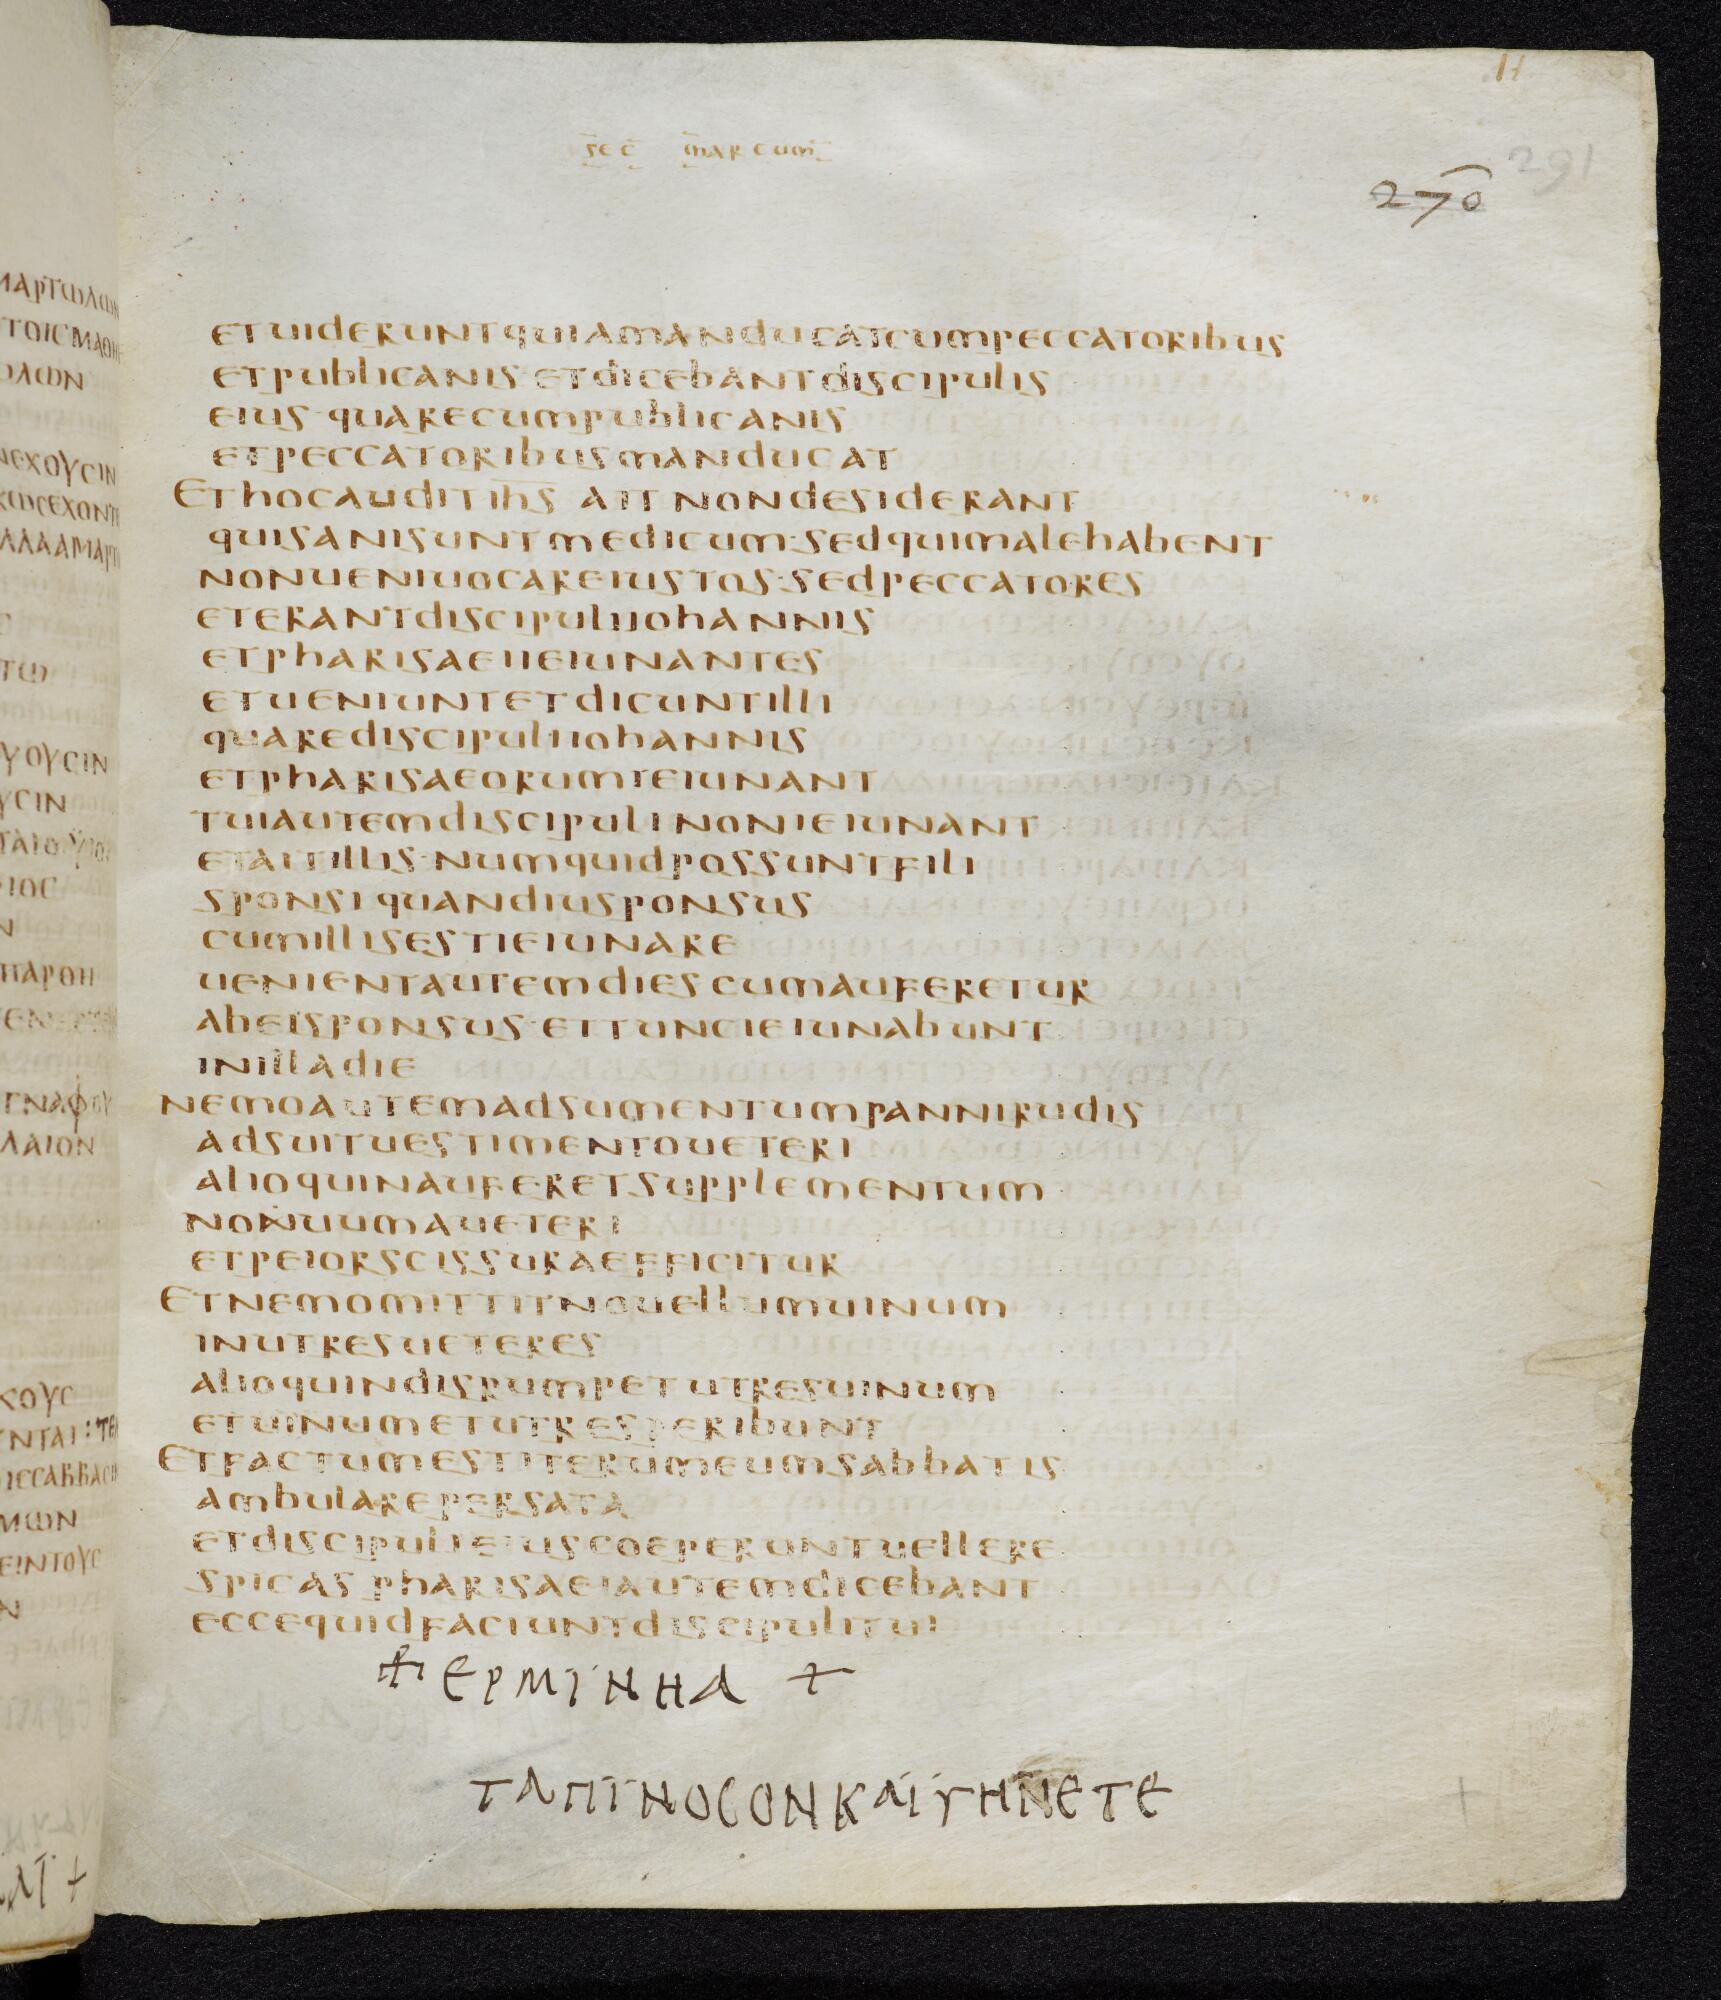 sec marcum
270 291
etuideruntquiamanducatcumpeccatoribus
etpublicanis· etdicebantdiscipulis
eius· quarecumpublicanis
etpeccatoribusmanducat
Ethocauditihs̅ ait nondesiderant
quisanisuntmedicum· sedquimalehabent
nonueniuocareiustos· sedpeccatores
eterantdiscipuliiohannis
etpharisaeiieiunantes
etueniuntetdicuntilli
quarediscipuliiohannis
etpharisaeorumieiunant
tuiautemdiscipulinonieiunant
etaitillis· numquidpossuntfili
sponsiquandiusponsus
cumillisestieiunare
uenientautemdiescumauferetur
abeisponsus· ettuncieiunabunt
inilladie
nemoautemadsumentumpannirudis
adsuituestimentoueteri
alioquinauferetsupplementum
nonuumaueteri
etpeiorscissuraefficitur
Etnemomittitnouellumuinum
inutresueteres
alioquindisrumpetutresuinum
etuinumetutresperibunt
Etfactumestiterumeumsabbatis
ambularepersata
etdiscipulieiuscoeperuntuellere
spicas pharisaeiautemdicebant
eccequidfaciuntdiscipulitui
+ ερμινηα +
ταπινοσονκαιγηνετε